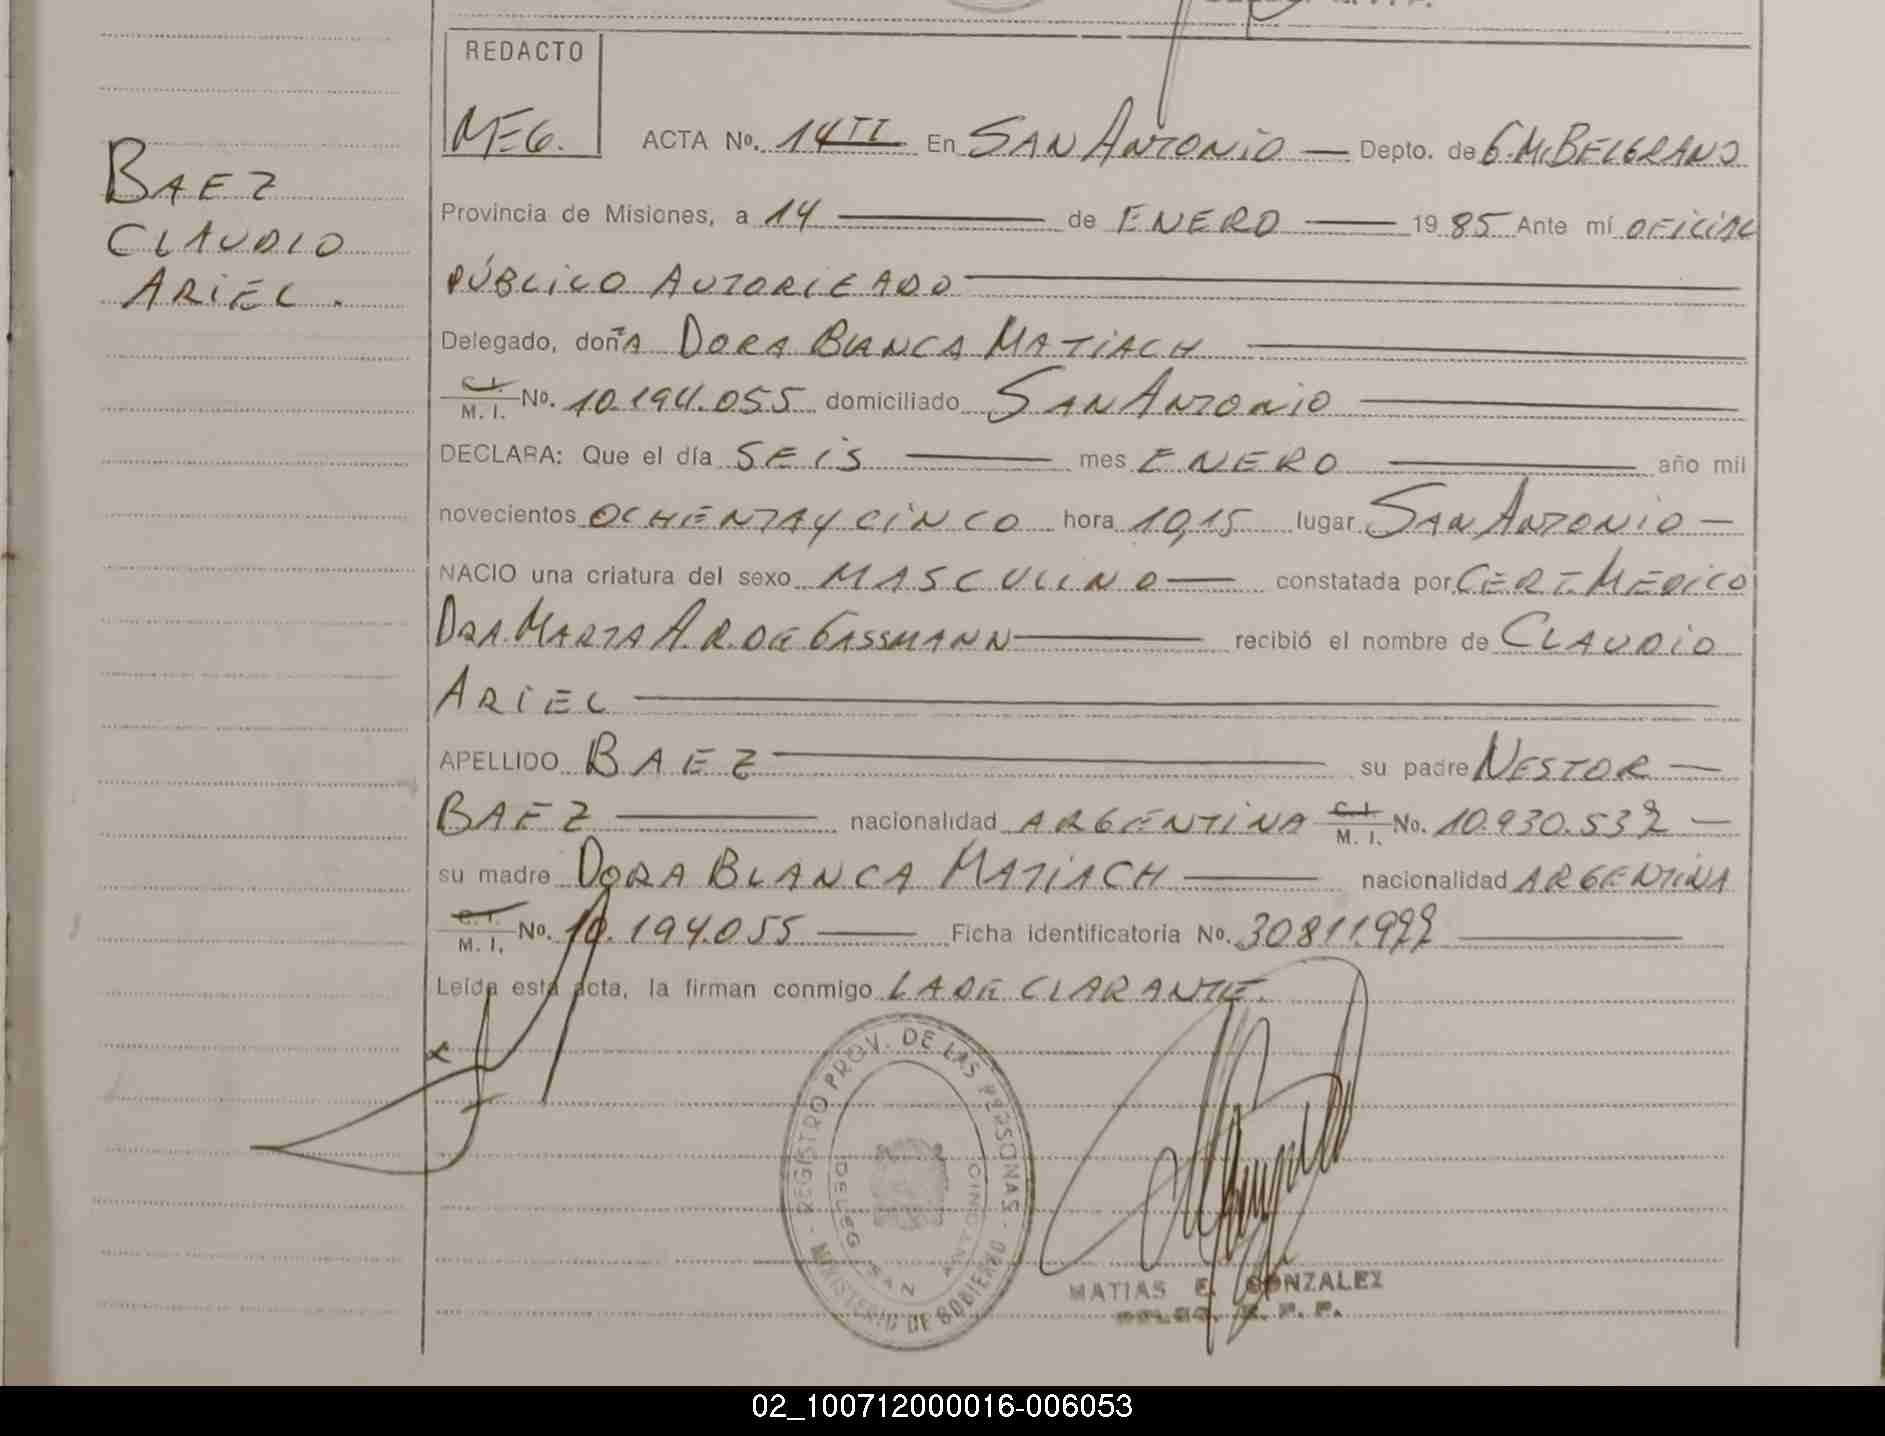 REDACTO
MEG.
ACTA No. 14 TI En SAN ANTONIO — Depto. de G.M.BELGRANO
BAEZ
CLAUDIO
ARIEL.
Provincia de Misiones, a 14 — de ENERO — 1985 Ante mí OFICIAL
PÚBLICO AUTORIZADO —
Delegado, doñA DORA BLANCA MATIACH —
C. I. / M. I. No. 10.194.055 domiciliado SAN ANTONIO —
DECLARA: Que el día SEIS — mes ENERO — año mil
novecientos OCHENTA Y CINCO hora 10,15 lugar SAN ANTONIO —
NACIO una criatura del sexo MASCULINO — constatada por CERT. MEDICO
DRA. MARTA A. R. DE GASSMANN — recibió el nombre de CLAUDIO
ARIEL —
APELLIDO BAEZ — su padre NESTOR —
BAEZ — nacionalidad ARGENTINA C. I. / M. I. No. 10.930.532 —
su madre DORA BLANCA MATIACH — nacionalidad ARGENTINA
C. I. / M. I. No. 10.194.055 — Ficha identificatoria No. 30811.922 —
Leída esta acta, la firman conmigo LA DECLARANTE.
REGISTRO PROV. DE LAS PERSONAS
MINISTERIO DE GOBIERNO
DELEG SAN ANTONIO
MATIAS E. GONZALEZ
02_100712000016-006053